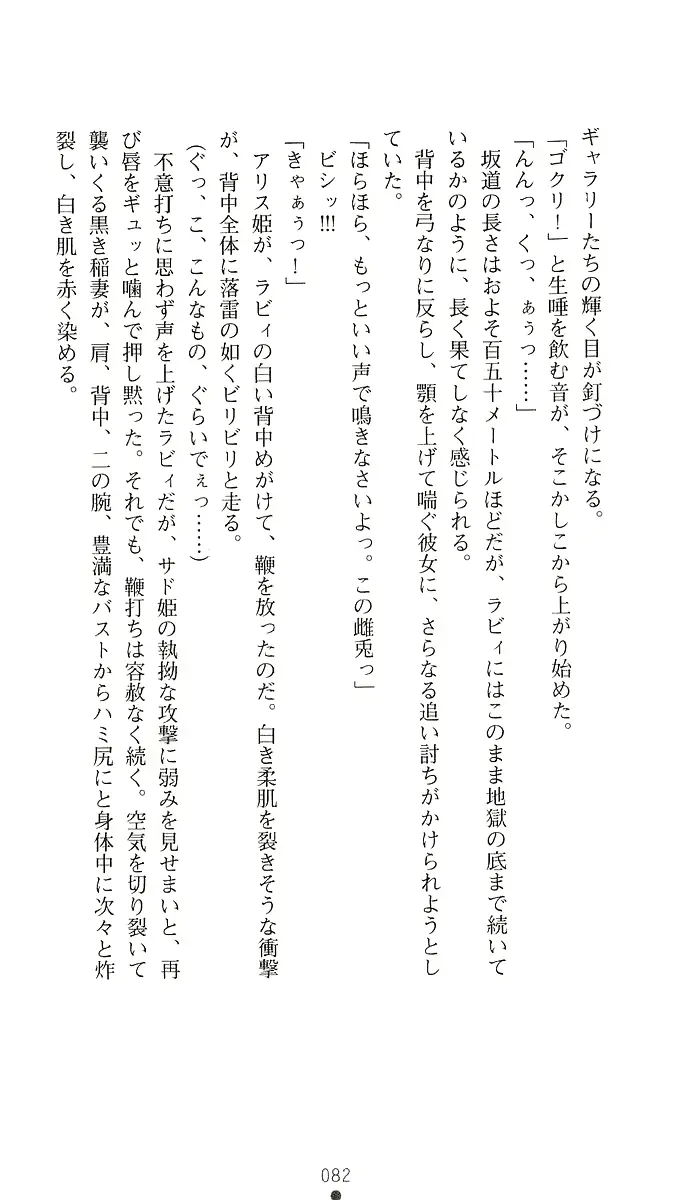 ギャラリーたちの輝く目が釘づけになる。
「ゴクリ！」と生唾を飲む音が、そこかしこから上がり始めた。
「んんっ、くっ、ぁぅっ……」
坂道の長さはおよそ百五十メートルほどだが、ラビィにはこのまま地獄の底まで続いて
いるかのように、長く果てしなく感じられる。
背中を弓なりに反らし、顎を上げて喘ぐ彼女に、さらなる追い討ちがかけられようとし
ていた。
「ほらほら、もっといい声で鳴きなさいよっ。この雌兎っ」
ビシッ!!!
「きゃぁぅっ！」
アリス姫が、ラビィの白い背中めがけて、鞭を放ったのだ。白き柔肌を裂きそうな衝撃
が、背中全体に落雷の如くビリビリと走る。
(ぐっ、こ、こんなもの、ぐらいでぇっ……)
不意打ちに思わず声を上げたラビィだが、サド姫の執拗な攻撃に弱みを見せまいと、再
び唇をギュッと噛んで押し黙った。それでも、鞭打ちは容赦なく続く。空気を切り裂いて
襲いくる黒き稲妻が、肩、背中、二の腕、豊満なバストからハミ尻にと身体中に次々と炸
裂し、白き肌を赤く染める。
082